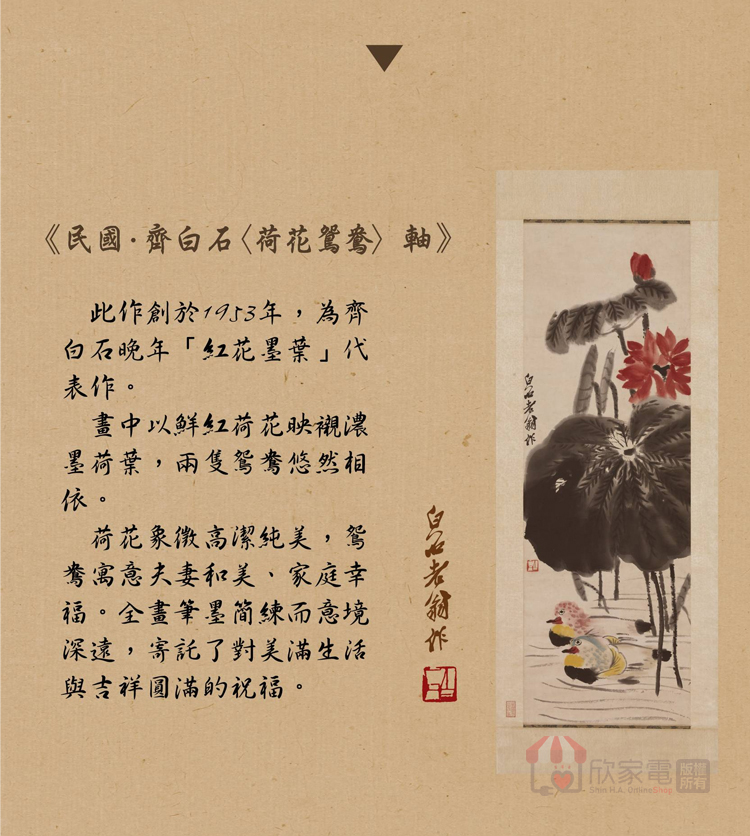 《民國·齊白石〈荷花鴛鴦〉 軸》
此作創於1953年，為齊
白石晚年「紅花墨葉」代
表作。
畫中以鮮紅荷花映襯濃
墨荷葉，兩隻鴛鴦悠然相
依。
荷花象徵高潔純美，鴛
鴦寓意夫妻和美、家庭幸
福。全畫筆墨簡練而意境
深遠，寄託了對美滿生活
與吉祥圓滿的祝福。
白石老翁作
白石老翁作
欣家電
Shin H.A. OnlineShop
版權
所有